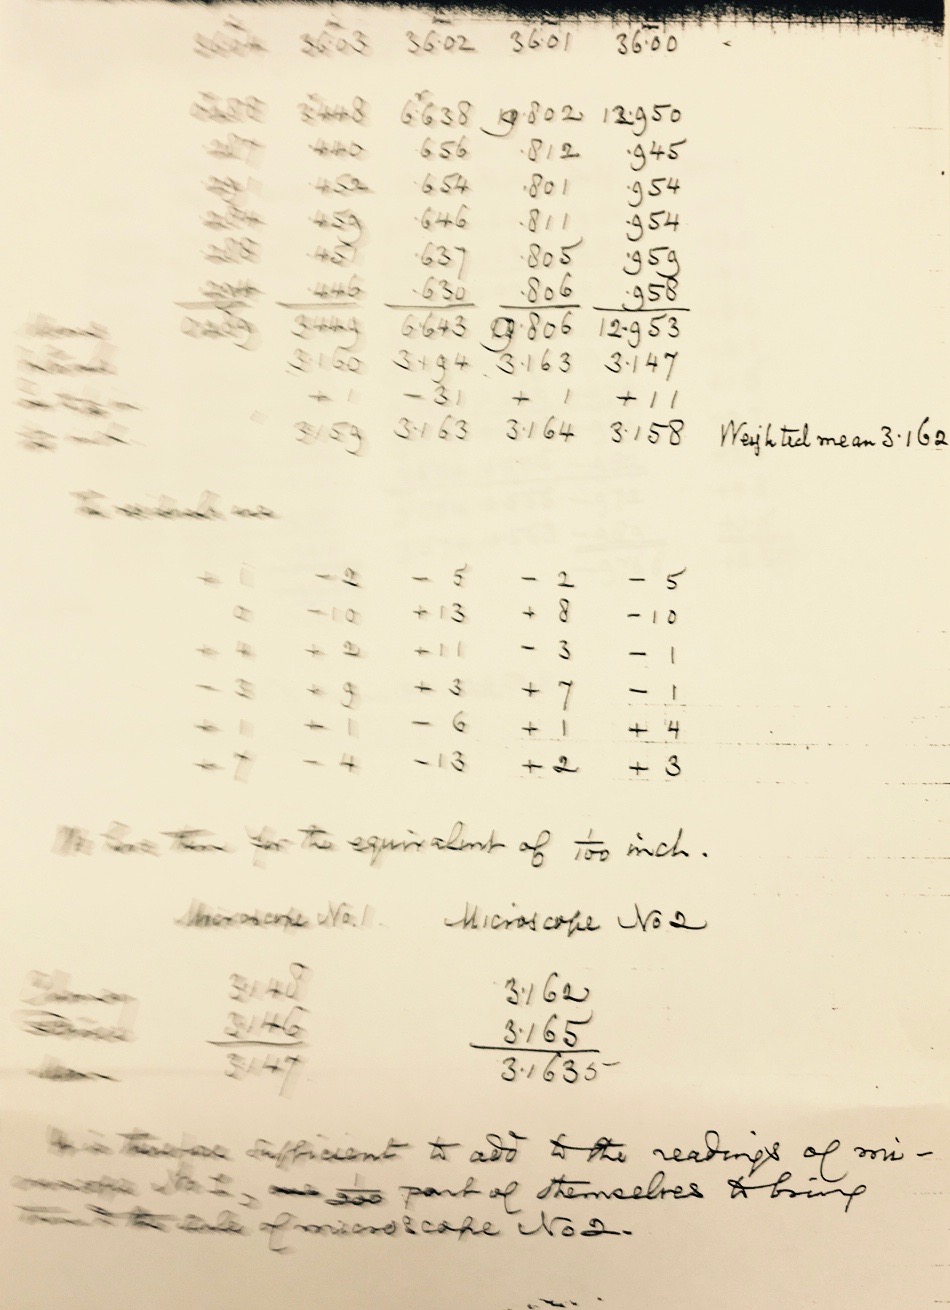 36.04 36.03 36.02 36.01 36.00
3.448 6.638 9.802 12.950
.440 .656 .812 .945
.452 .654 .801 .954
.459 .646 .811 .954
.451 .637 .805 .959
.446 .630 .806 .958
3.449 6.643 9.806 12.953
3.160 3.194 3.163 3.147
+ 1 - 31 + 1 + 11
3.159 3.163 3.164 3.158 Weighted mean 3.162
The residuals are
+ 1 - 2 - 5 - 2 - 5
0 - 10 + 13 + 8 - 10
+ 4 + 2 + 11 - 3 - 1
- 3 + 9 + 3 + 7 - 1
+ 1 + 1 - 6 + 1 + 4
+ 7 - 4 - 13 + 2 + 3
We have then for the equivalent of 1/100 inch.
Microscope No. 1 Microscope No 2
3.148 3.162
3.146 3.165
Mean 3.147 3.1635
It is therefore sufficient to add to the readings of mi-
croscope No. 1, 1/200 part of themselves to bring
them to the scale of microscope No 2.